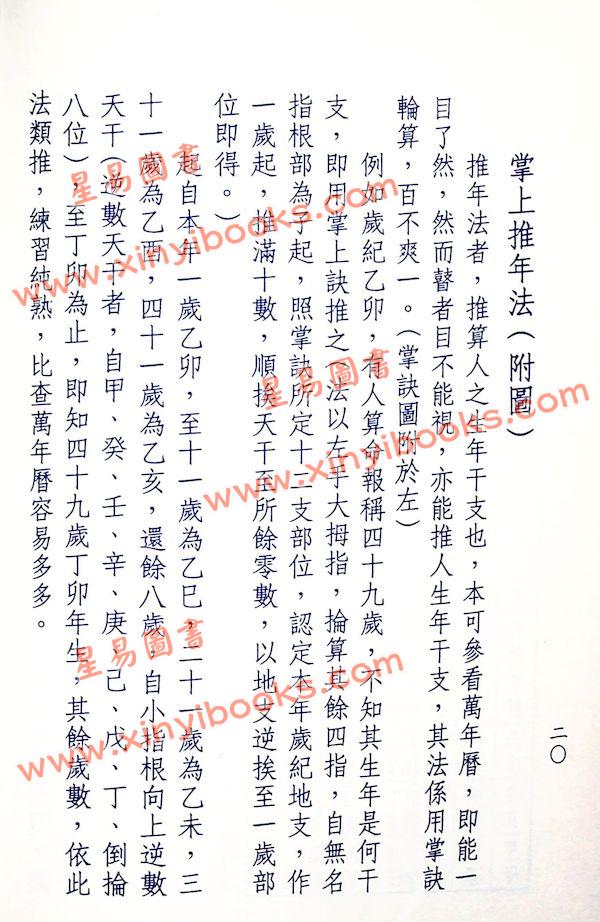 掌上推年法(附圖)
推年法者，推算人之生年干支也，本可參看萬年曆，即能一
目了然，然而瞽者目不能視，亦能推人生年干支，其法係用掌訣
輪算，百不爽一。(掌訣圖附於左)
例如歲紀乙卯，有人算命報稱四十九歲，不知其生年是何干
支，即用掌上訣推之，法以左手大拇指，掄算其餘四指，自無名
指根部為子起，照掌訣所定十二支部位，認定本年歲紀地支，作
一歲起，推滿十數，順挨天干至所餘零數，以地支逆挨至一歲部
位即得。)
起自本年一歲乙卯，至十一歲為乙巳，二十一歲為乙未，三
十一歲為乙酉，四十一歲為乙亥，還餘八歲，自小指根向上逆數
天干(逆數天干者，自甲、癸、壬、辛、庚、己、戊、丁、倒掄
八位)，至丁卯為止，即知四十九歲丁卯年生，其餘歲數，依此
法類推，練習純熟，比查萬年曆容易多多。
二〇
星易圖書
www.xinyibooks.com
星易圖書
www.xinyibooks.com
星易圖書
www.xinyibooks.com